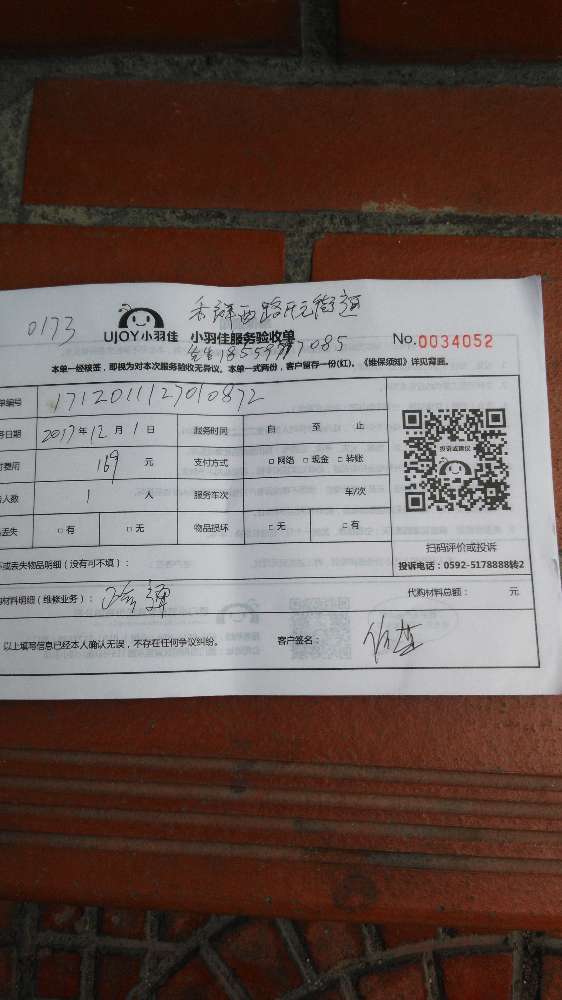 0173
UJOY小羽佳 小羽佳服务验收单 No.0034052
本单一经核签，即视为对本次服务验收无异议。本单一式两份，客户留存一份(红)。《维保须知》详见背面。
单编号 1712011127010872
务日期 2017年12月1日 服务时间 自 至 止
费用 169 元 支付方式 □网络 □现金 □转账
人数 1 人 服务车次 车/次
丢失 □有 □无 物品损坏 □无 □有
投诉或建议
扫码评价或投诉
投诉电话：0592-5178888转2
或丢失物品明细（没有可不填）：
材料明细（维修业务）： 代购材料总额： 元
以上填写信息已经本人确认无误，不存在任何争议纠纷。 客户签名：